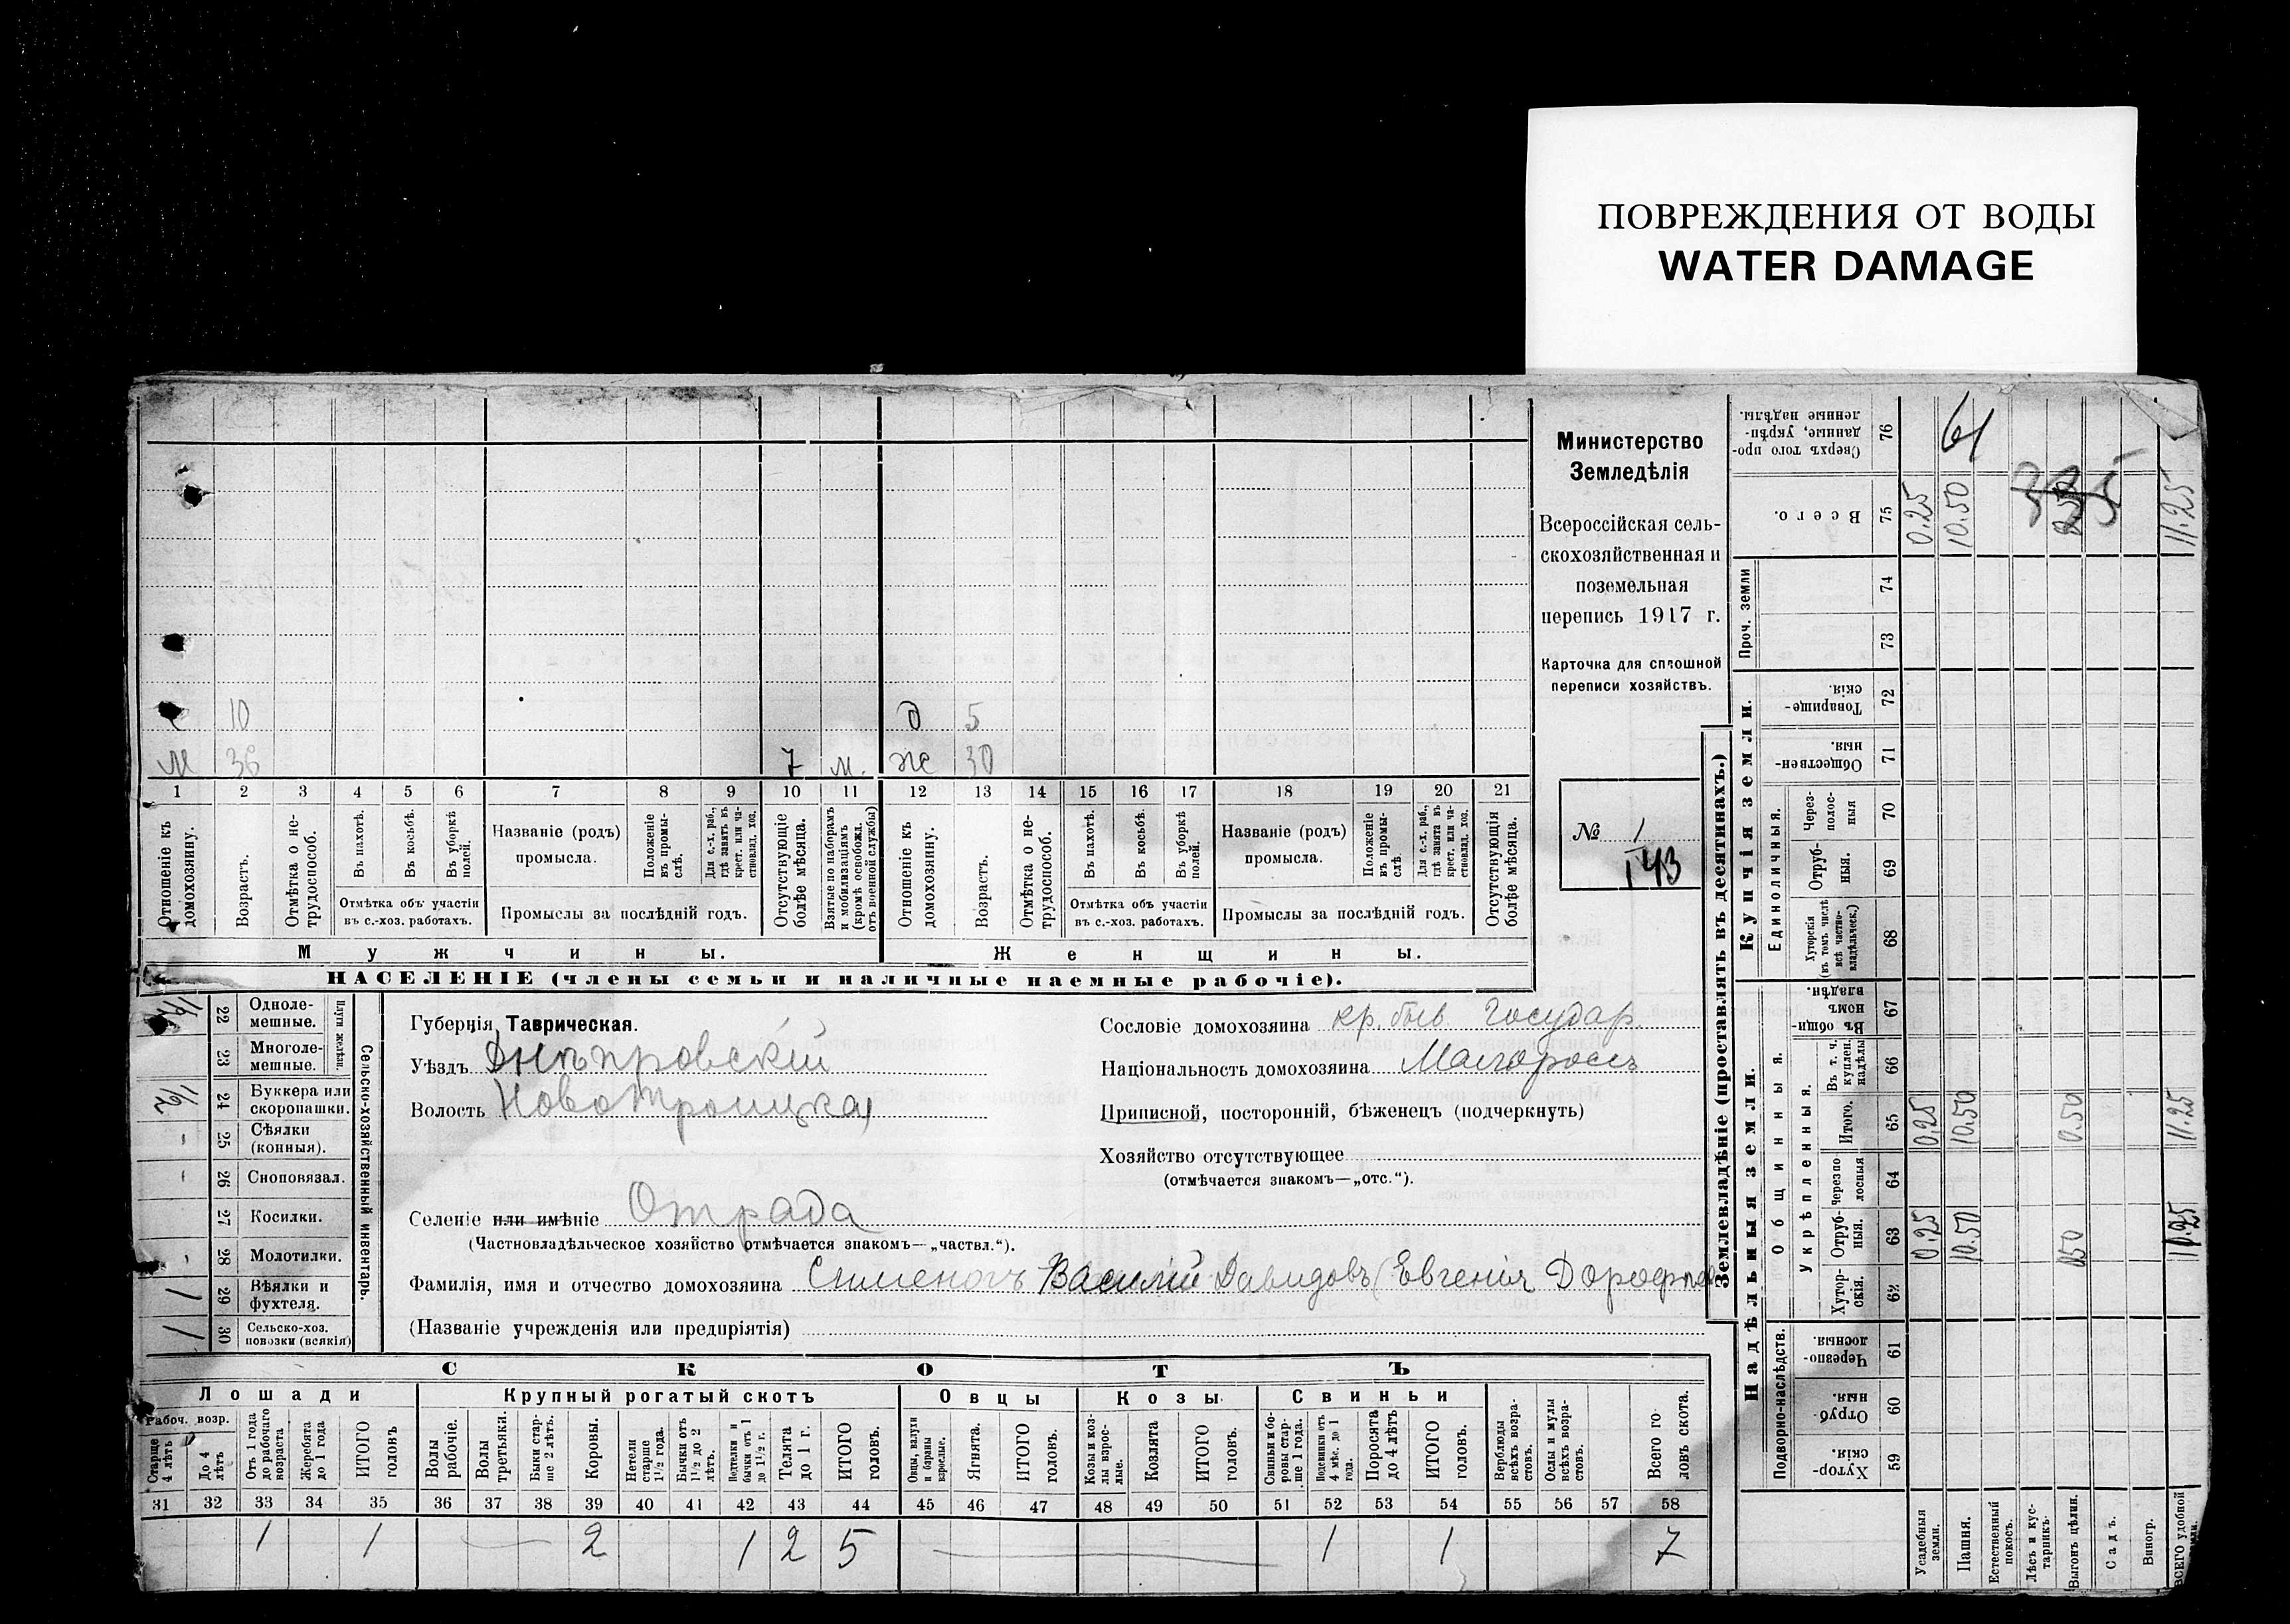 ПОВРЕЖДЕНИЯ ОТ ВОДЫ
WATER DAMAGE
Министерство
Земледѣлія
Всероссійская сель-
скохозяйственная и
поземельная
перепись 1917 г.
Карточка для сплошной
переписи хозяйствъ.
№ 1
143
10 д 5
М 36 7 м. Ж 30
1 2 3 4 5 6 7 8 9 10 11 12 13 14 15 16 17 18 19 20 21
Отношеніе къ домохозяину.
Возрастъ.
Отмѣтка о не-трудоспособ.
Въ пахотѣ.
Въ косьбѣ.
Въ уборкѣ полей.
Отмѣтка объ участіи
въ с.-хоз. работахъ.
Названіе (родъ)
промысла.
Положеніе въ промы-слѣ.
Для с.-х. раб., гдѣ занятъ въ крест. или ча-стновлад. хоз.
Промыслы за послѣдній годъ.
Отсутствующіе болѣе мѣсяца.
Взятые по наборамъ и мобилизаціямъ (кромѣ освобожд. отъ военной службы)
Отношеніе къ домохозяину.
Возрастъ.
Отмѣтка о не-трудоспособ.
Въ пахотѣ.
Въ косьбѣ.
Въ уборкѣ полей.
Отмѣтка объ участіи
въ с.-хоз. работахъ.
Названіе (родъ)
промысла.
Положеніе въ промы-слѣ.
Для с.-х. раб., гдѣ занята въ крест. или ча-стновлад. хоз.
Промыслы за послѣдній годъ.
Отсутствующія болѣе мѣсяца.
Мужчины.
Женщины.
НАСЕЛЕНІЕ (члены семьи и наличные наемные рабочіе).
Сельско-хозяйственный инвентарь.
Плуги желѣзн.
22 Одноле-мешные.
23 Многоле-мешные.
1/2 24 Буккера или скоропашки.
25 Сѣялки (конныя).
26 Сноповязал.
27 Косилки.
28 Молотилки.
1 29 Вѣялки и фухтеля.
1 30 Сельско-хоз. повозки (всякія)
Губернія Таврическая.
Уѣздъ Днѣпровскій
Волость Новотроицкая
Селеніе или имѣніе Отрада
(Частновладѣльческое хозяйство отмѣчается знакомъ—„частвл.“).
Фамилія, имя и отчество домохозяина Василій Давидовъ (Евгенія
(Названіе учрежденія или предпріятія)
Сословіе домохозяина кр. быв. Государ.
Національность домохозяина Малороссъ
Приписной, посторонній, бѣженецъ (подчеркнуть)
Хозяйство отсутствующее
(отмѣчается знакомъ—„отс.“).
СКОТЪ
Лошади
Крупный рогатый скотъ
Овцы
Козы
Свиньи
Рабоч. возр.
Старше 4 лѣтъ
До 4 лѣтъ
Отъ 1 года до рабочаго возраста
Жеребята до 1 года
ИТОГО головъ
Волы рабочіе.
Волы третьяки.
Быки стар-ше 2 лѣтъ.
Коровы.
Нетели старше 1½ года.
Бычки отъ 1½ до 2 лѣтъ.
Нетелки и бычки отъ 1 до 1½ г.
Телята до 1 г.
ИТОГО головъ.
Овцы, валухи и бараны взрослые.
Ягнята.
ИТОГО головъ.
Козы и коз-лы взрос-лые.
Козлята
ИТОГО головъ.
Свиньи и бо-ровы стар-ше 1 года.
Подсвинки отъ 4 мѣс. до 1 года.
Поросята до 4 лѣтъ
ИТОГО головъ.
Верблюды всѣхъ возра-стовъ.
Ослы и мулы всѣхъ возра-стовъ.
Всего го-ловъ скота.
31 32 33 34 35 36 37 38 39 40 41 42 43 44 45 46 47 48 49 50 51 52 53 54 55 56 57 58
1 1 2 1 2 5 1 1 7
Землевладѣніе (проставлять въ десятинахъ.)
Купчія земли.
Надѣльныя земли.
Проч. земли
Единоличныя.
Общинныя.
Укрѣпленныя.
Подворно-наслѣдств.
Сверхъ того про-данные, укрѣп-ленные надѣлы. 76 61
Всего. 75 0.25 10.50 11.25
74
73
Товарище-скія. 72
Обществен-ныя. 71
Через-полос-ныя 70
Отруб-ныя. 69
Хуторскія (въ томъ числѣ всѣ частно-владѣльческ.) 68
Въ общи-номъ владѣн. 67
Въ т. ч. куплен. надѣлы 66
Итого. 65 0.25 10.50 0.50 11.25
Черезпо-лосныя 64
Отруб-ныя. 63 0.25 10.50 0.50 11.25
Хутор-скія. 62
Черезпо-лосныя 61
Отруб-ныя. 60
Хутор-скія. 59
Усадебныя земли.
Пашня.
Естественный покосъ.
Лѣсъ и кус-тарникъ.
Выгонъ цѣлин.
Садъ.
Виногр.
ВСЕГО удобной